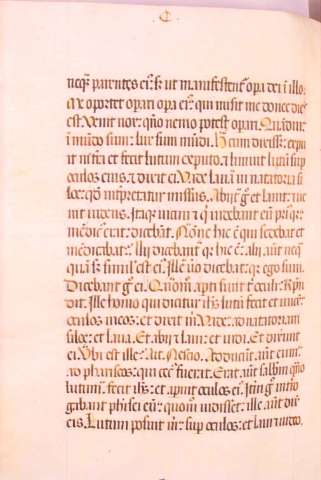 C
neqꝫ parentes ei⁹: sꝫ ut manifestent͛ opa dei ī illo.
Me oportet opari opa ei⁹ qui misit me donec dies
est. Venit nox: qn̄ nemo potest opari. Quādiu
ī mūdo sum: lux sum mūdi. Hec cum dixisset: expu
it in terrā et fecit lutum ex sputo: ⁊ linivit lutū sup
oculos eius, ⁊ dixit ei. Vade lava ī natatoria si
loe: qđ interpretatur missus. Abijt g̊ et lavit: ⁊ ve
nit videns. Itaqꝫ vicini ⁊ qͥ videbant eū priꝰ qꝛ
mēdicꝰ erat: dicebāt. Nōne hic ē qui sedebat et
mēdicabat? Alij dicebant qꝛ hic ē. alij aut neqͣ
quā sꝫ similis est ei. Ille v̊o dicebat: qꝛ ego sum.
Dicebant g̊ ei. Quom̊ apti sunt t̄ oculi? Rn̄
dit. Ille homo qui dicitur ihs: lutū fecit et unxit
oculos meos: et dixit m̄. Vade ad natatoriam
siloe: et lava. Et abij ⁊ lavi: et video. Et dixerunt
ei. Ubi est ille? Ait. Nescio. Adducunt eum
ad phariseos: qui cec⁹ fuerit. Erat aut sabbm̄ qn̄
lutum fecit ihs: et apuit oculos ei⁹. Itꝫ g̊ intro
gabant pharisei eū: quom̊ vidisset. ille aut dix̄
eis. Lutum posuit m̄ sup oculos: et lavi ⁊ video.